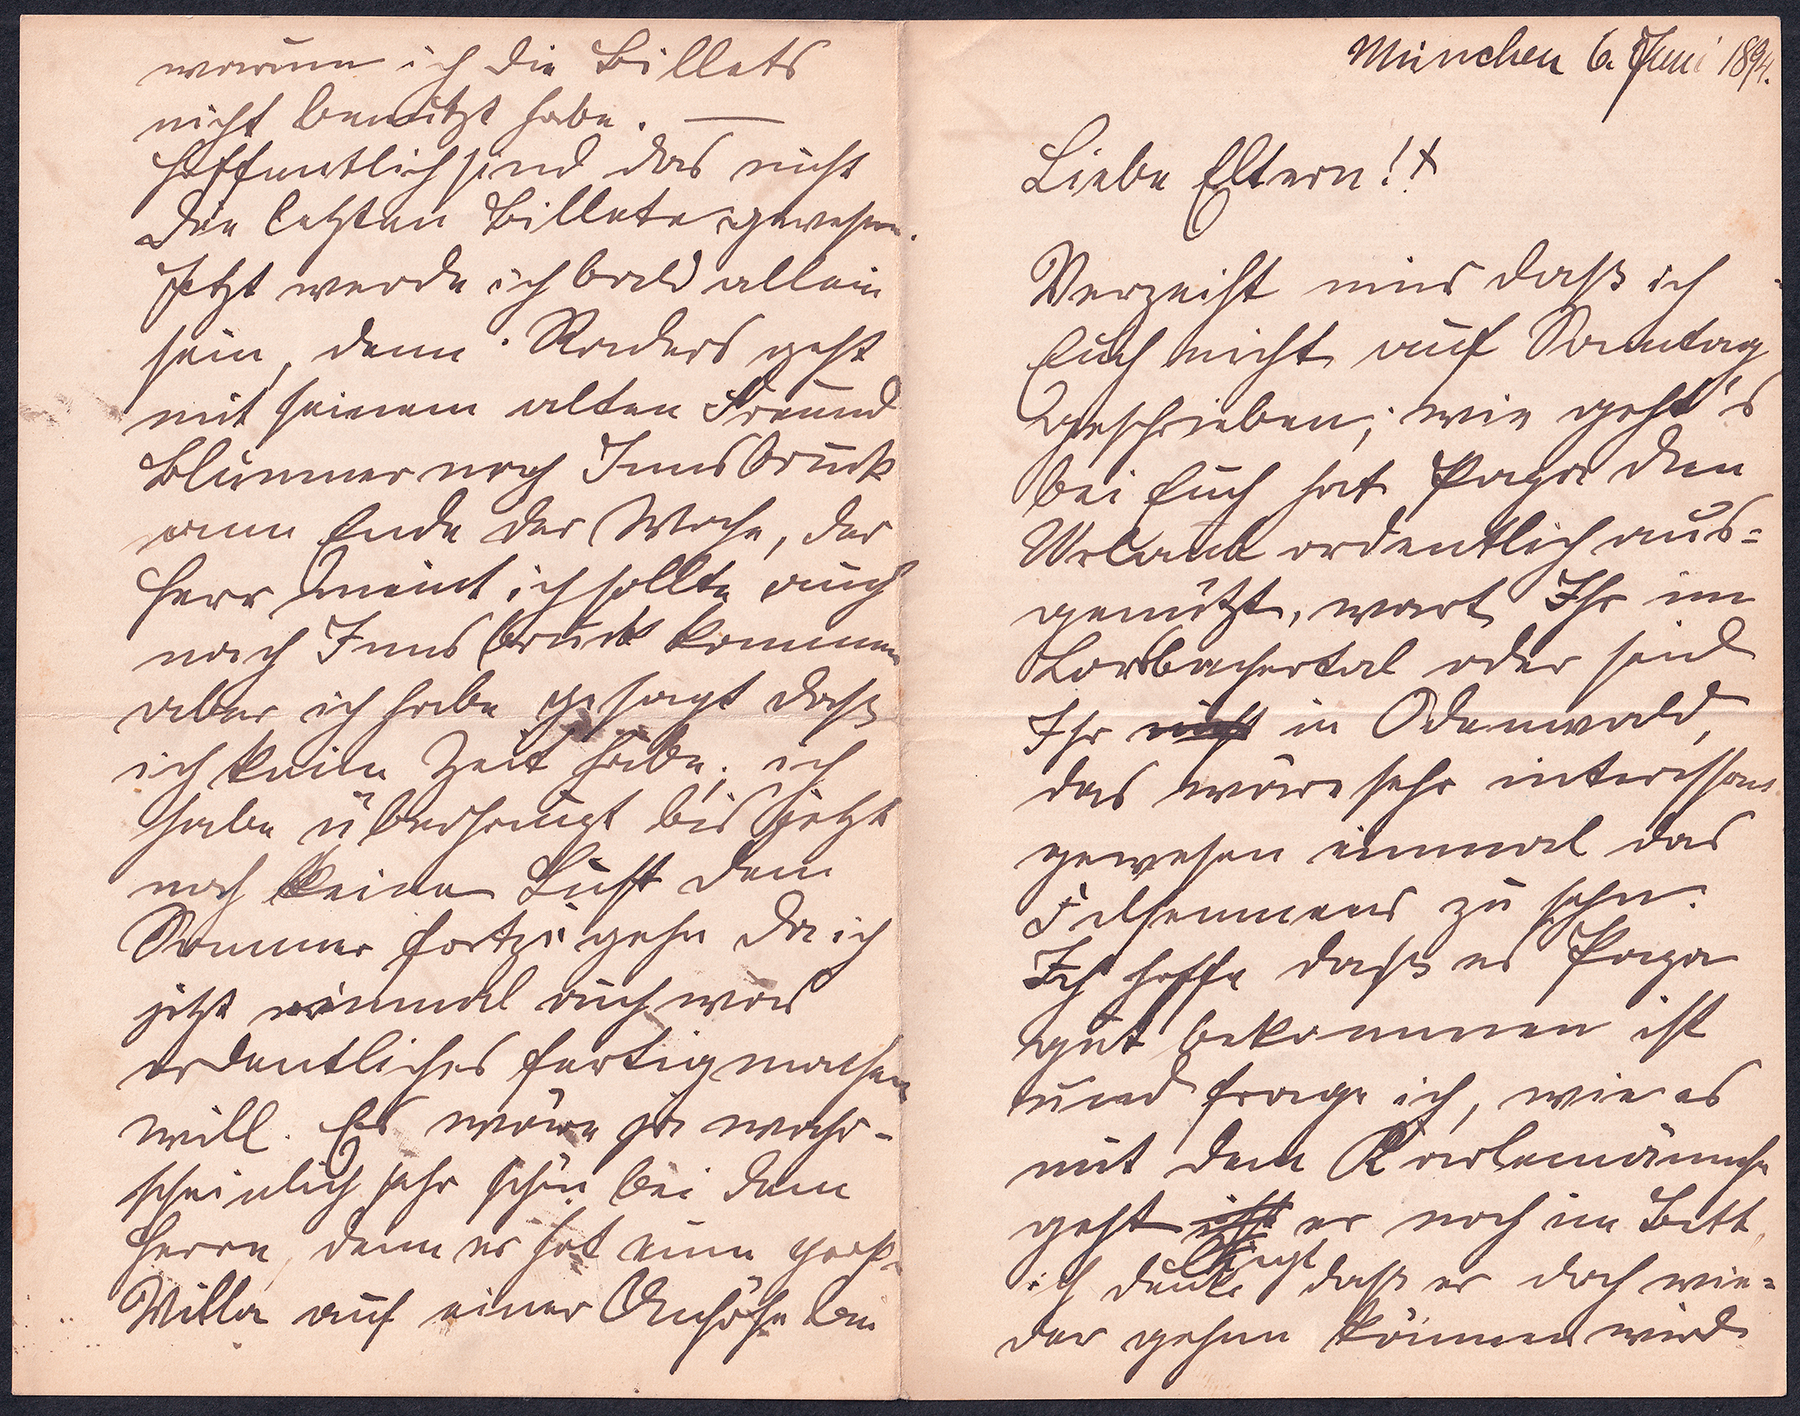 München 6. Juni 1894.
Liebe Eltern!
Verzeiht mir daß ich
Euch nicht auf Sonntag
geschrieben; wie geht's
bei Euch hat Papa den
Urlaub ordentlich aus=
genützt, wart Ihr im
Lorsbachertal oder seid
Ihr nicht in Odenwald,
das wäre sehr interessant
gewesen einmal das
Felsenmeer zu sehn.
Ich hoffe daß es Papa
gut bekommen ist
und frage ich, wie es
mit dem
geht ist er noch im Bett,
liegt
ich denke daß er doch wie=
der gehen können wird
warum ich die Billets
nicht benützt habe. —
Hoffentlich sind das nicht
die letzten Billete gewesen.
Jetzt werde ich bald allein
sein, denn Raders geht
mit seinem alten Freund
nach Innsbruck
am Ende der Woche, der
Herr meint ich sollte auch
nach Innsbruck kommen
aber ich habe gesagt daß
ich keine Zeit habe; ich
habe überhaupt bis jetzt
noch keine Lust den
Sommer fortzugehn da ich
jetzt einmal auch was
ordentliches fertig machen
will. Es wäre ja wahr-
scheinlich sehr schön bei dem
Herrn, denn er hat eine große
Willa auf einer Anhöhe bei